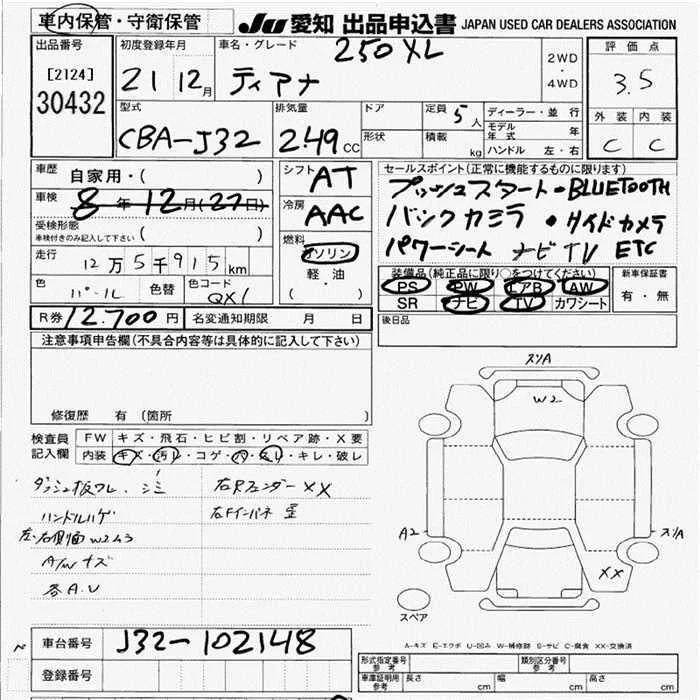 車内保管・守衛保管
JU 愛知 出品申込書 JAPAN USED CAR DEALERS ASSOCIATION
出品番号
[2124]
30432
初度登録年月
21 12月
車名・グレード
250XL
ティアナ
2WD
・
4WD
評価点
3.5
外装 内装
C C
型式
CBA-J32
排気量
2.49 CC
ドア
形状
定員 5人
積載 kg
ディーラー・並行
モデル年式 年
ハンドル 左・右
車歴 自家用・( )
車検 8年12月(27日)
受検形態
車検付きのみ記入して下さい ( )
走行 12万5千915km
色 パール 色替 色コード QX1
シフト AT
冷房 AAC
燃料
ガソリン
軽油
( ・ )
セールスポイント(正常に機能するものに限ります)
プッシュスタート・BLUETOOTH
バックカメラ ・サイドカメラ
パワーシート ナビ TV ETC
装備品(純正品に限り○をつけてください)
PS PW エアB AW
SR ナビ TV カワシート
新車保証書
有・無
R券 12,700円 名変通知期限 月 日
後日品
注意事項申告欄(不具合内容等は具体的に記入して下さい)
修復歴 有 (箇所 )
検査員記入欄
FW キズ・飛石・ヒビ割・リペア跡・X要
内装 キズ・汚レ・コゲ・穴・スレ・キレ・破レ
ダッシュ板ワレ、シミ
ハンドルハゲ
左、右側面W2 43
A/Wキズ
各A.U
右Rフェンダー XX
右Fインパネ
スリA
W2
A2
スリA
XX
スペア
A-キズ E-エクボ U-凹み W-補修跡 S-サビ C-腐食 XX-交換済
車台番号 J32-102148
登録番号
型式指定番号 参考
類別区分番号 参考
車庫証明用 参考
長さ cm 幅 cm 高さ cm